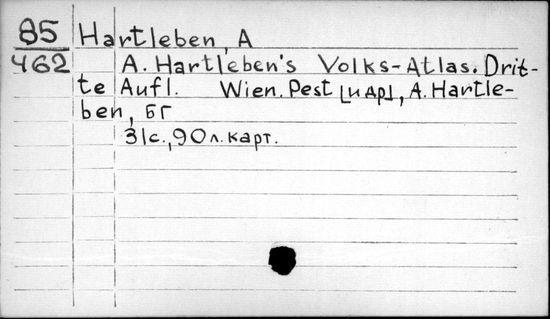 85 Hartleben, A
462 A. Hartleben's Volks-Atlas. Drit-
te Aufl. Wien. Pest [и др], A. Hartle-
ben, БГ
31с., 90л. карт.